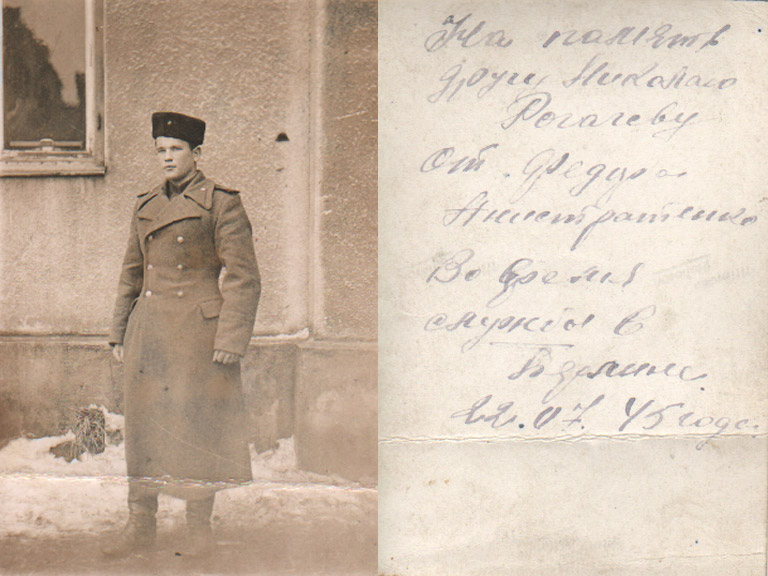 На память
другу Николаю
Рогачеву
От Федура
Анистратенко
Во время
службы в
Берлине
22.07.45 года.